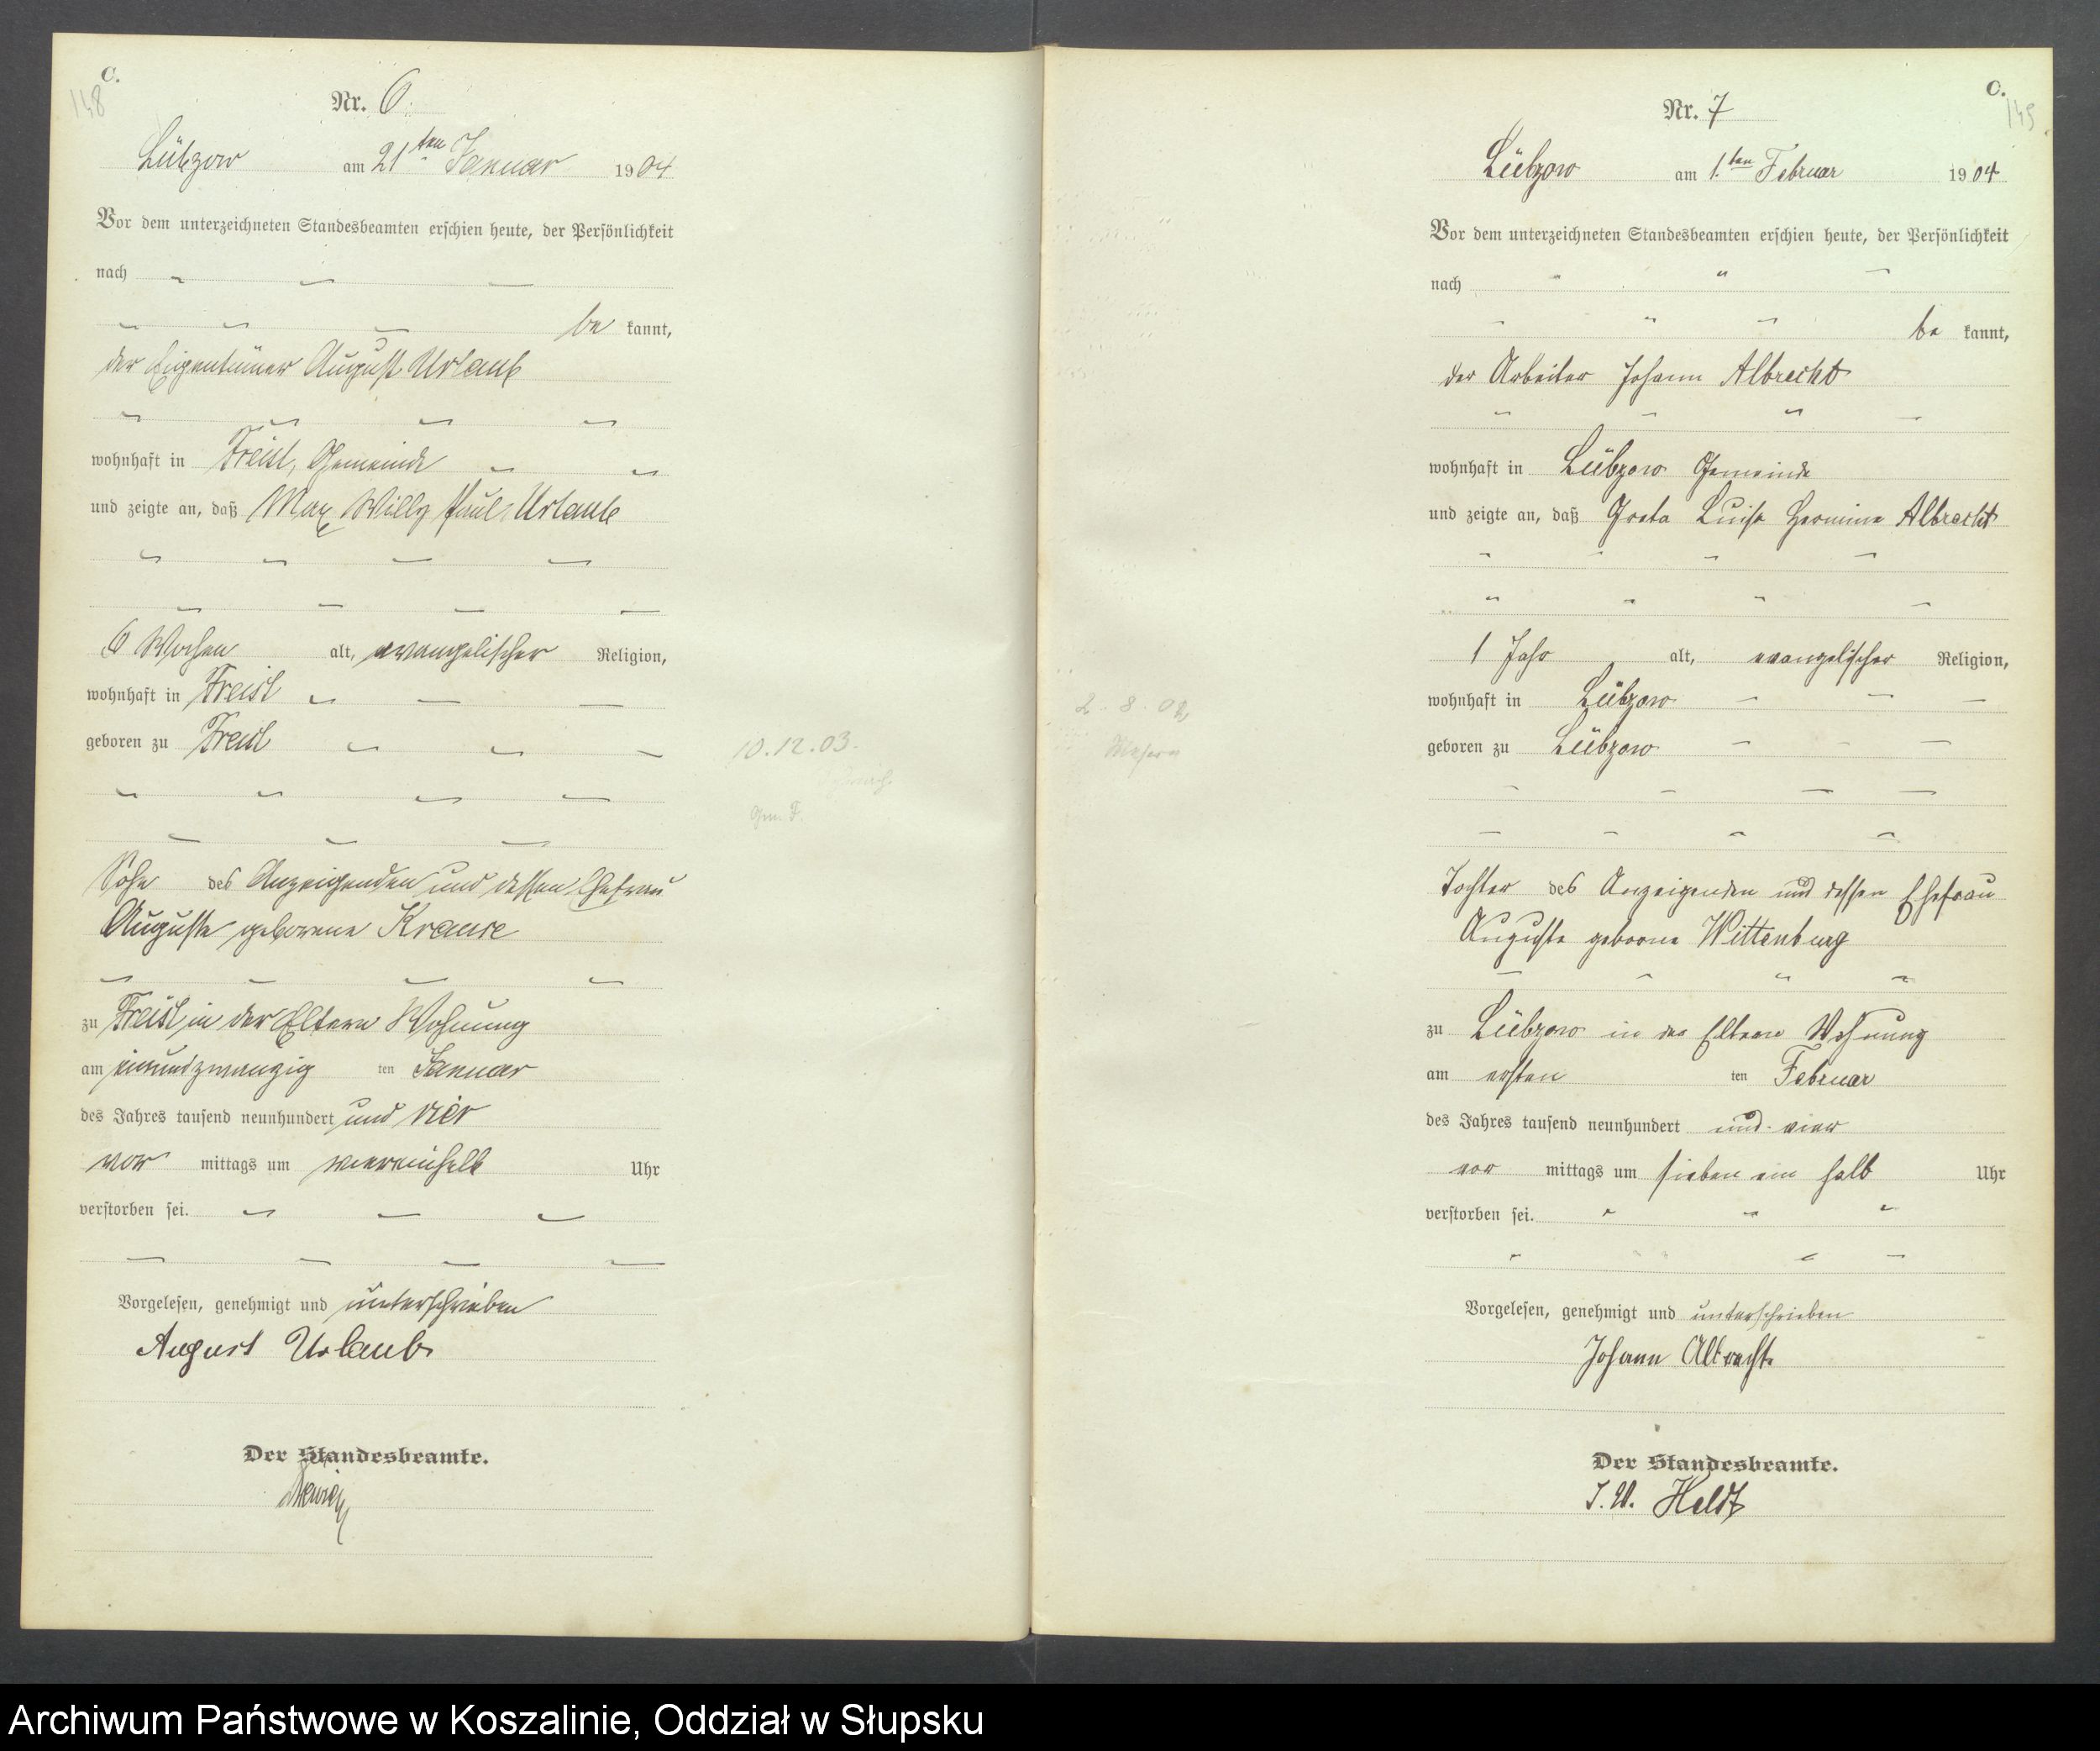 C.
148
Nr. 6.
Lübzow am 21ten Januar 1904
Vor dem unterzeichneten Standesbeamten erschien heute, der Persönlichkeit
nach
be kannt,
der Eigentümer August Urlaub
wohnhaft in Freist, Gemeinde
und zeigte an, daß Max Willy Paul Urlaub
6 Wochen alt, evangelischer Religion,
wohnhaft in Freist
geboren zu Freist
10.12.03.
Gem. F.
Sohn des Anzeigenden und dessen Ehefrau
Auguste geborene Krause
zu Freist in der Eltern Wohnung
am einundzwanzig ten Januar
des Jahres tausend neunhundert und vier
vor mittags um viereinhalb Uhr
verstorben sei.
Vorgelesen, genehmigt und unterschrieben
August Urlaub
Der Standesbeamte.
C.
149
Nr. 7
Lübzow am 1.ten Februar 1904
Vor dem unterzeichneten Standesbeamten erschien heute, der Persönlichkeit
nach
be kannt,
der Arbeiter Johann Albrecht
wohnhaft in Lübzow Gemeinde
und zeigte an, daß Greta Luise Hermine Albrecht
1 Jahr alt, evangelischer Religion,
wohnhaft in Lübzow
2.8.02
Masern
geboren zu Lübzow
Tochter des Anzeigenden und dessen Ehefrau
Auguste geborne Wittenburg
zu Lübzow in der Eltern Wohnung
am ersten ten Februar
des Jahres tausend neunhundert und vier
vor mittags um sieben ein halb Uhr
verstorben sei.
Vorgelesen, genehmigt und unterschrieben
Johann Albrecht
Der Standesbeamte.
I. V. Heldt
Archiwum Państwowe w Koszalinie, Oddział w Słupsku